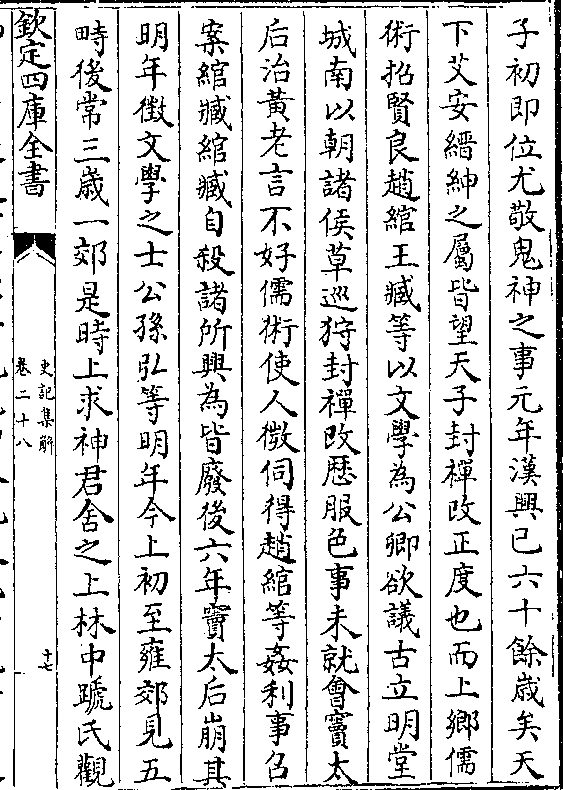 子初即位尤敬鬼神之事元年漢興已六十餘歳矣天
下艾安縉紳之屬皆望天子封禪改正度也而上鄉儒
術招賢良趙綰王臧等以文學為公卿欲議古立明堂
城南以朝諸侯草巡狩封禪改歴服色事未就會竇太
后治黃老言不好儒術使人微伺得趙綰等姦利事召
案綰臧綰臧自殺諸所興為皆廢後六年竇太后崩其
明年徵文學之士公孫弘等明年今上初至雍郊見五
畤後常三歳一郊是時上求神君舍之上林中蹏氏觀
欽定四庫全書
史記集解
卷二十八
十七